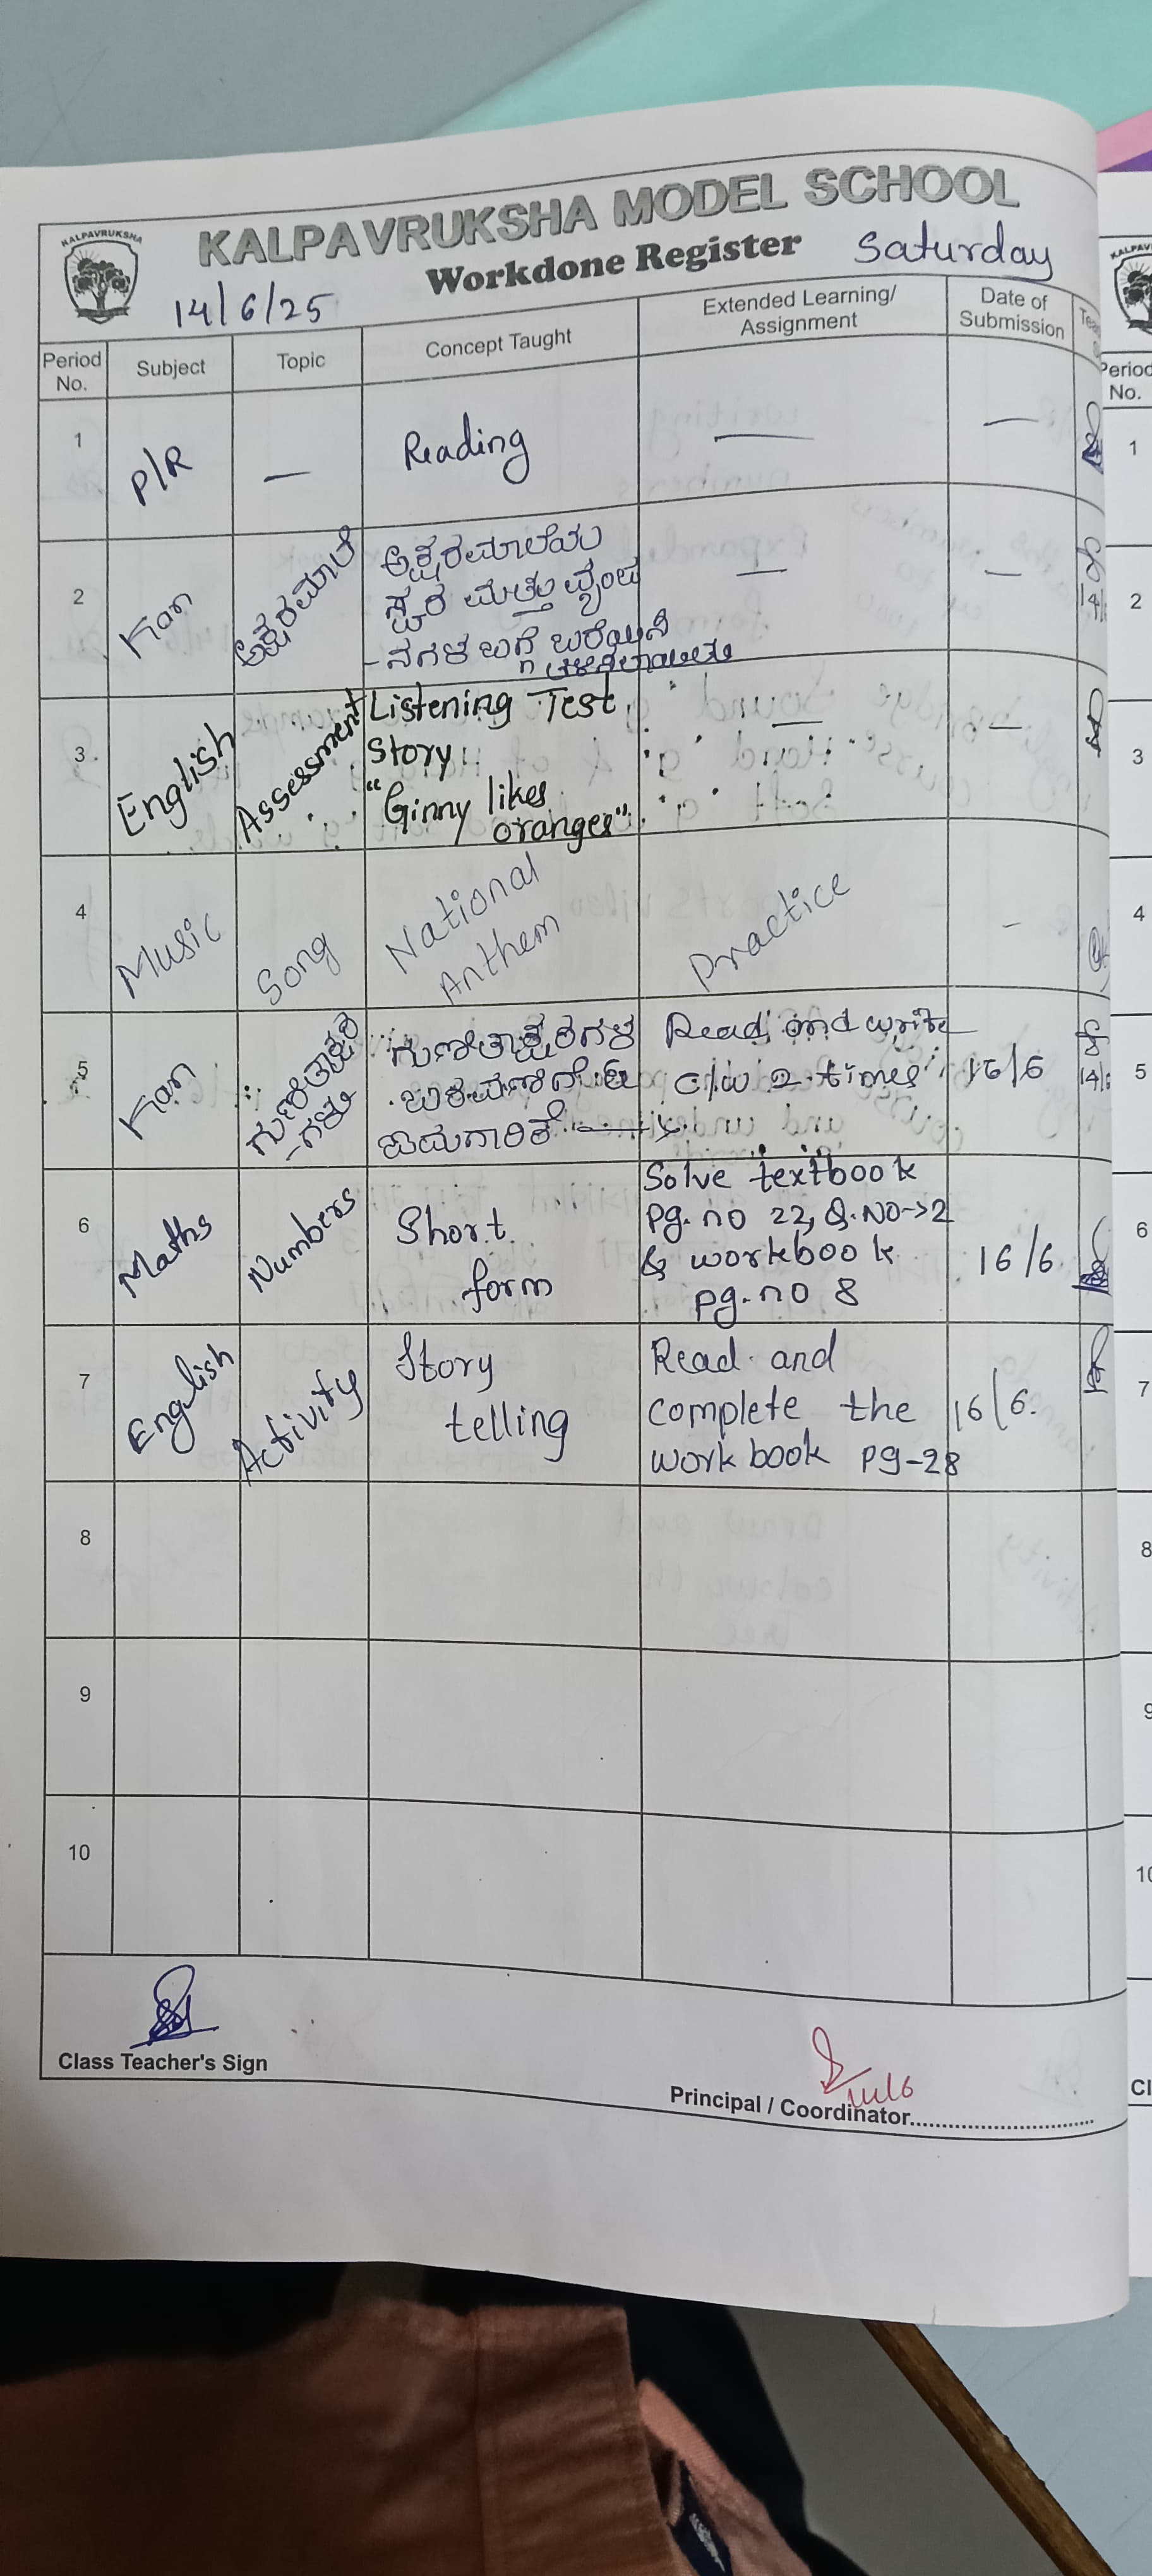 KALPAVRUKSHA
KALPAVRUKSHA MODEL SCHOOL
Workdone Register
Saturday
14/6/25
Period No.
Subject
Topic
Concept Taught
Extended Learning/
Assignment
Date of
Submission
1
P/R
—
Reading
—
—
2
Kan
ಅಕ್ಷರಮಾಲೆ
ಅಕ್ಷರಮಾಲೆಯ
ಸ್ವರ ಮತ್ತು ವ್ಯಂಜ
-ನಗಳ ಬಗ್ಗೆ ಬರೆಯಿಸಿ
ತಿಳಿಸಲಾಯಿತು
—
—
14/
3
English
Assessment
Listening Test
Story
"Ginny likes
oranges"
—
—
4
Music
Song
National
Anthem
Practice
-
5
Kan
ಗುಣಿತಾಕ್ಷರ
-ಗಳು
ಗುಣಿತಾಕ್ಷರಗಳ
ಬರವಣಿಗೆಯ
Read and write
c/w 2 times
16/6
14/
6
Maths
Numbers
Short
form
Solve textbook
pg. no 22, Q.NO->2
& workbook
pg. no 8
16/6
7
English
Activity
Story
telling
Read and
complete the
work book pg-28
16/6.
8
9
10
Class Teacher's Sign
Principal / Coordinator
Period
No.
1
2
3
4
5
6
7
8
9
10